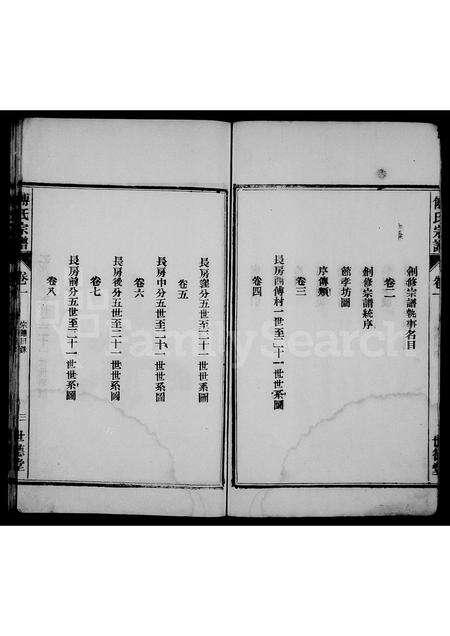 創修宗譜執事名目
卷二
創修宗譜統序
節孝坊圖
序傳類
卷三
長房西傅村一世至二十一世世系圖
卷四
長房窪分五世至二十一世世系圖
卷五
長房中分五世至二十一世世系圖
卷六
長房後分五世至二十一世世系圖
卷七
長房前分五世至二十一世世系圖
卷八
氏宗譜
卷一
宗譜目錄
三
世德堂
氏宗譜
卷一
世德堂
FamilySearch